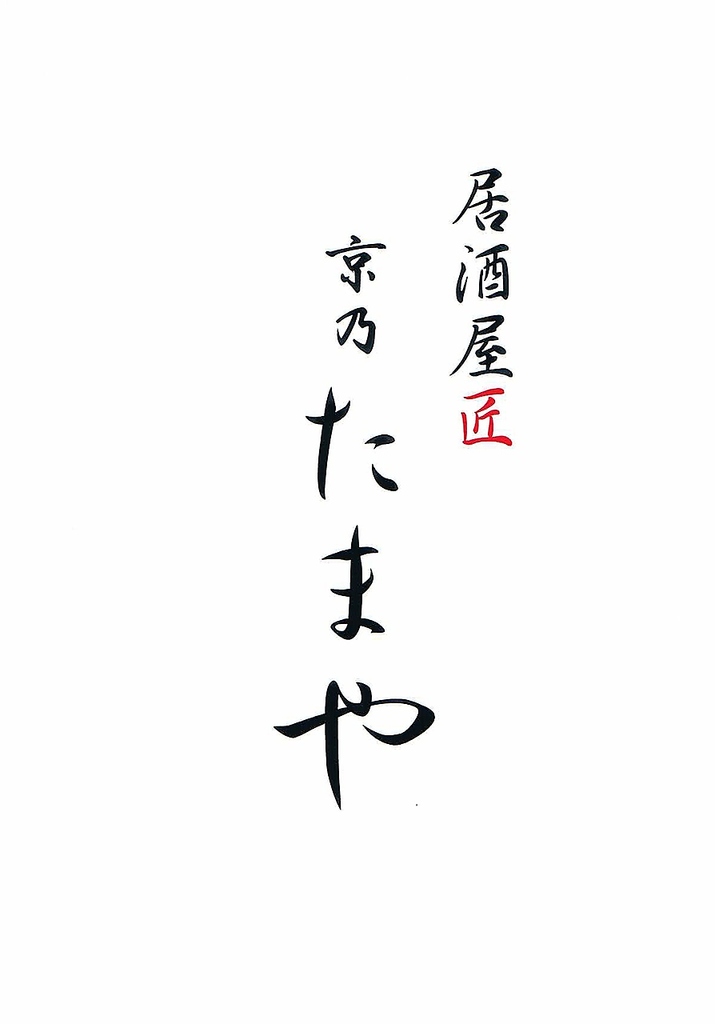 居酒屋匠
京乃たまや